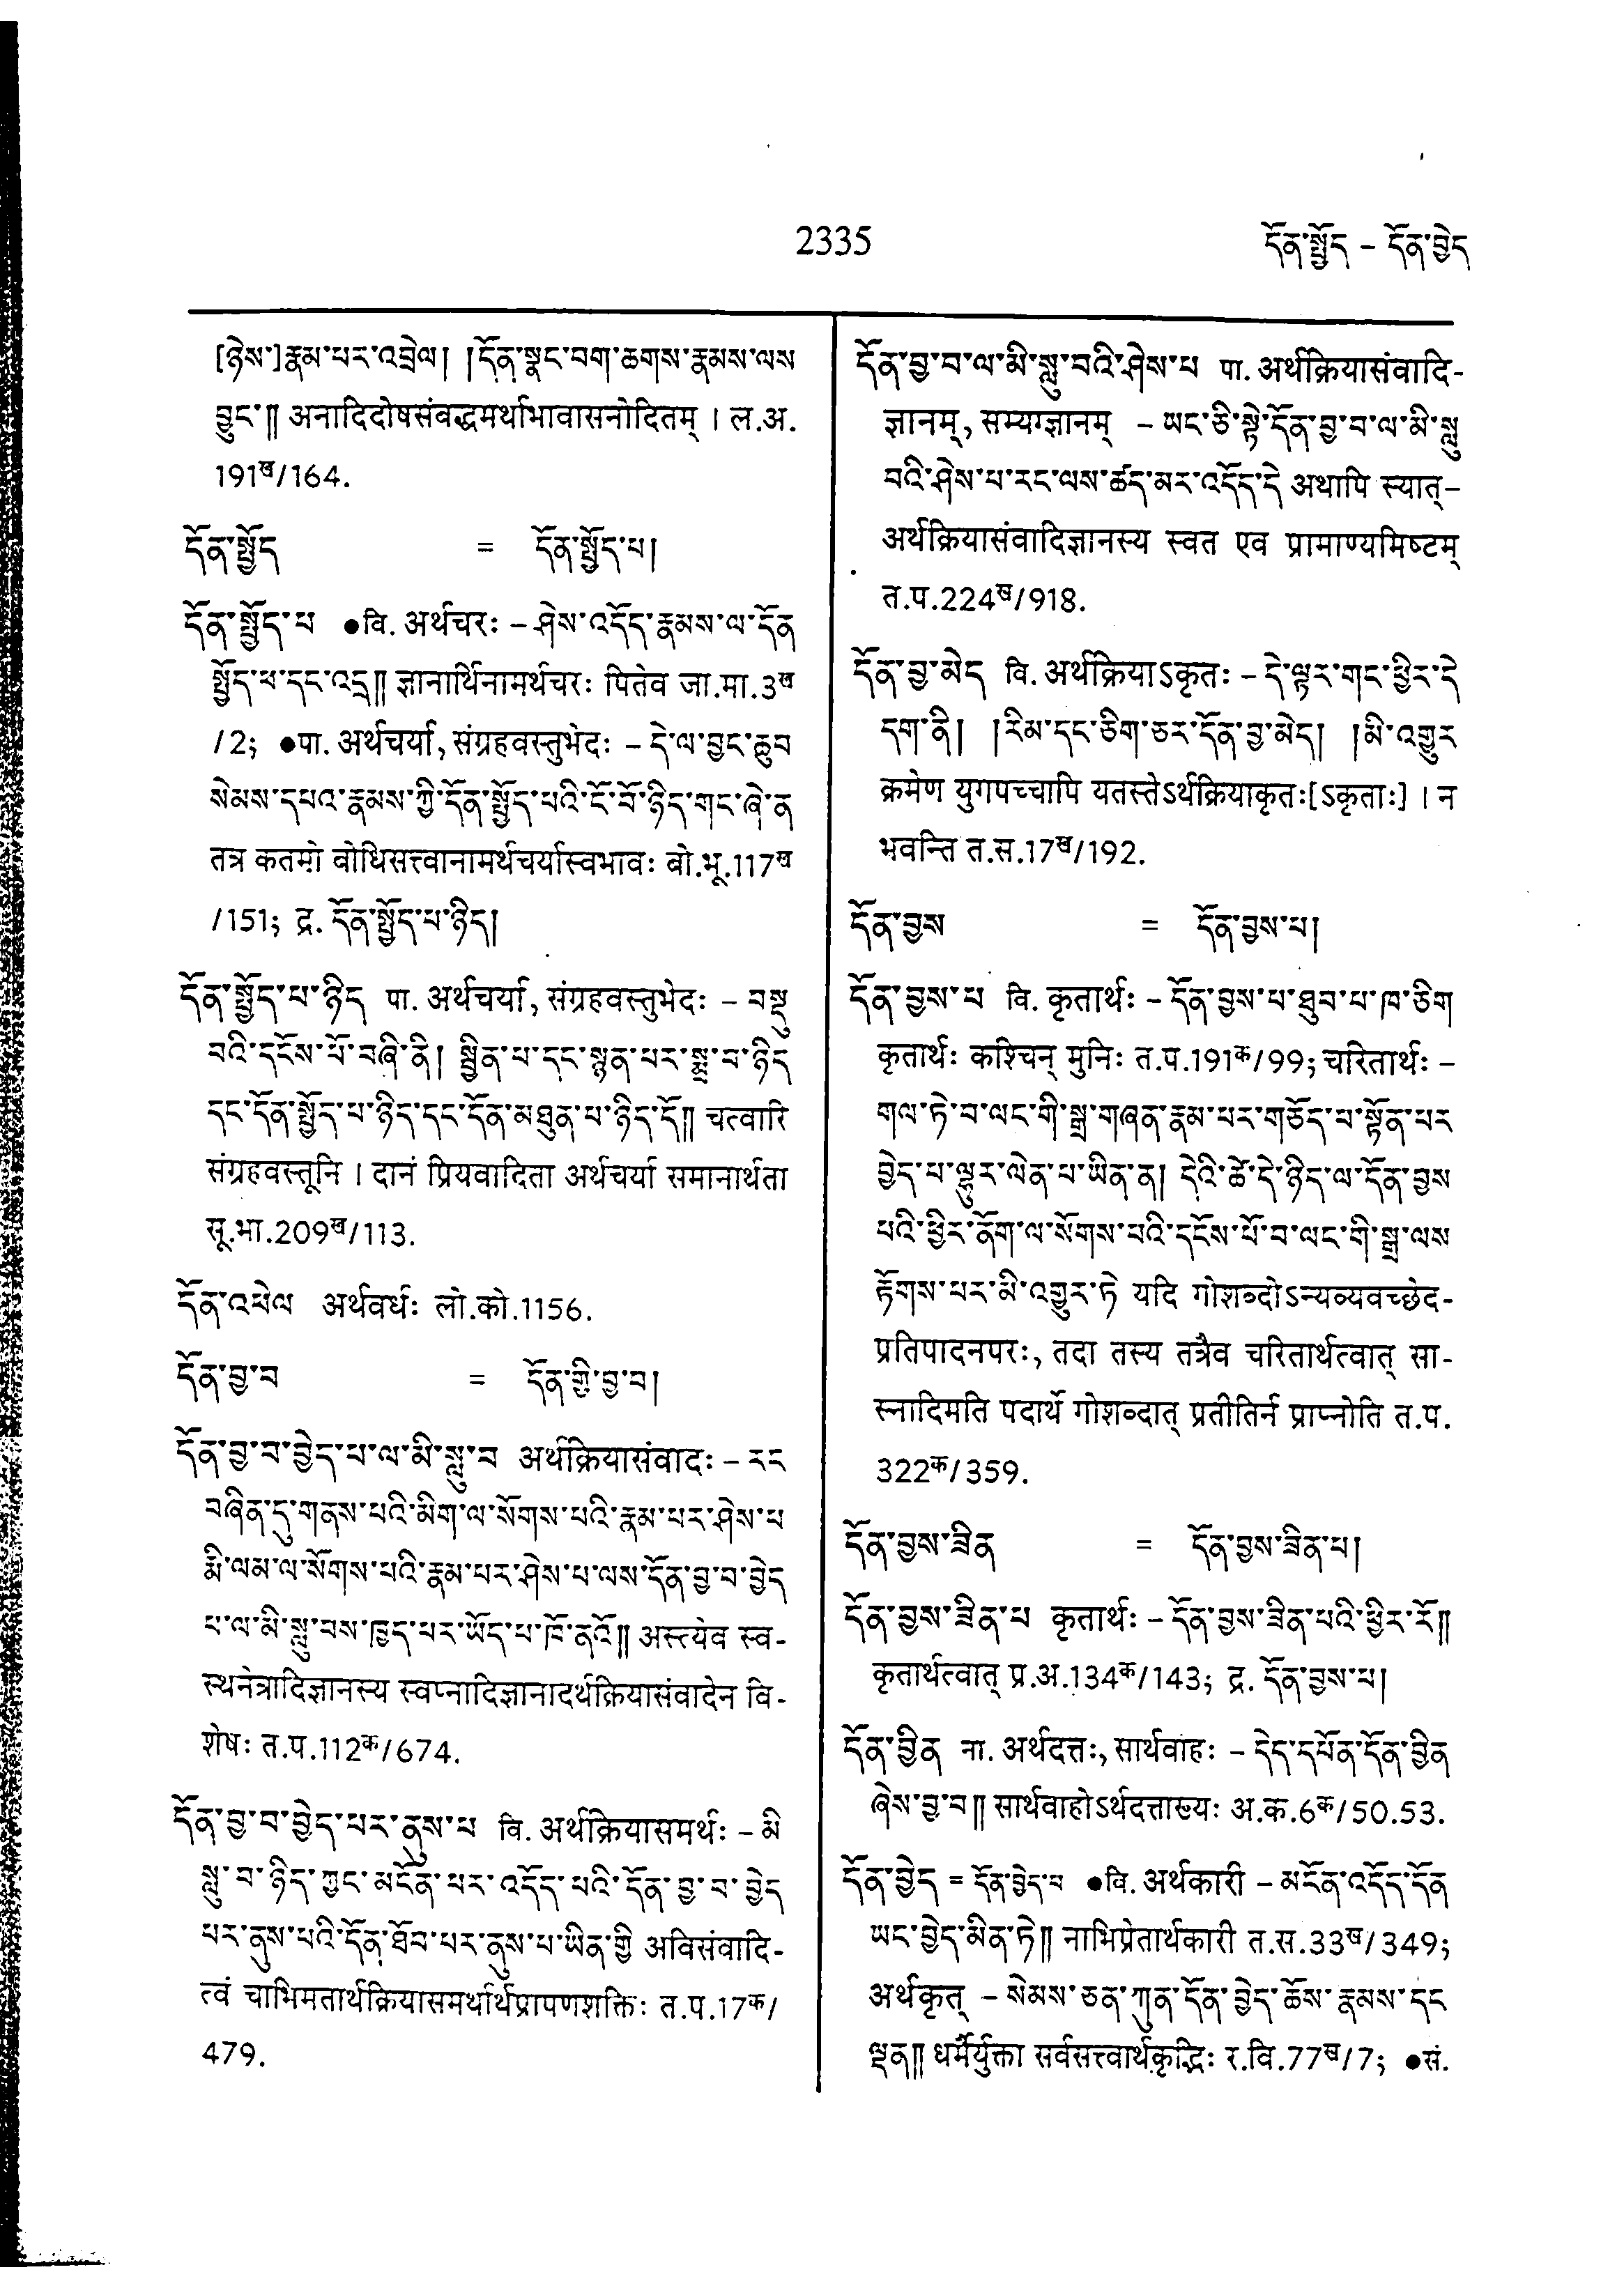 2335
དོན་སྤྱོད – དོན་བྱེད
[ཉེས་]རྣམ་པར་འབྲེལ། །དོན་སྣང་བག་ཆགས་རྣམས་ལས
བྱུང་༎ अनादिदोषसंबद्धमर्थाभावासनोदितम् । ल.अ.
191ख/164.
དོན་སྤྱོད = དོན་སྤྱོད་པ།
དོན་སྤྱོད་པ ●वि. अर्थचरः – ཤེས་འདོད་རྣམས་ལ་དོན
སྤྱོད་ཕ་དང་འདྲ༎ ज्ञानार्थिनामर्थचरः पितेव जा.मा.3ख
/2; ●पा. अर्थचर्या, संग्रहवस्तुभेदः – དེ་ལ་བྱང་ཆུབ
སེམས་དཔའ་རྣམས་ཀྱི་དོན་སྤྱོད་པའི་ངོ་བོ་ཉིད་གང་ཞེ་ན
तत्र कतमो बोधिसत्त्वानामर्थचर्यास्वभावः बो.भू.117ख
/151; द्र. དོན་སྤྱོད་པ་ཉིད།
དོན་སྤྱོད་པ་ཉིད पा. अर्थचर्या, संग्रहवस्तुभेदः – བསྡུ
བའི་དངོས་པོ་བཞི་ནི། སྦྱིན་པ་དང་སྙན་པར་སྨྲ་བ་ཉིད
དང་དོན་སྤྱོད་པ་ཉིད་དང་དོན་མཐུན་པ་ཉིད་དོ༎ चत्वारि
संग्रहवस्तूनि । दानं प्रियवादिता अर्थचर्या समानार्थता
सू.भा.209ख/113.
དོན་འཕེལ अर्थवर्धः लो.को.1156.
དོན་བྱ་བ = དོན་གྱི་བྱ་བ།
དོན་བྱ་བ་བྱེད་པ་ལ་མི་སླུ་བ अर्थक्रियासंवादः – རང
བཞིན་དུ་གནས་པའི་མིག་ལ་སོགས་པའི་རྣམ་པར་ཤེས་པ
རྨི་ལམ་ལ་སོགས་པའི་རྣམ་པར་ཤེས་པ་ལས་དོན་བྱ་བ་བྱེད
པ་ལ་མི་སླུ་བས་ཁྱད་པར་ཡོད་པ་ཁོ་ནའོ༎ अस्त्येव स्व-
स्थनेत्रादिज्ञानस्य स्वप्नादिज्ञानादर्थक्रियासंवादेन वि-
शेषः त.प.112क/674.
དོན་བྱ་བ་བྱེད་པར་ནུས་པ वि. अर्थक्रियासमर्थः – མི
སླུ་བ་ཉིད་ཀྱང་མངོན་པར་འདོད་པའི་དོན་བྱ་བ་བྱེད
པར་ནུས་པའི་དོན་ཐོབ་པར་ནུས་པ་ཡིན་གྱི अविसंवादि-
त्वं चाभिमतार्थक्रियासमर्थार्थप्रापणशक्तिः त.प.17क/
479.
དོན་བྱ་བ་ལ་མི་སླུ་བའི་ཤེས་པ पा. अर्थक्रियासंवादि-
ज्ञानम्, सम्यग्ज्ञानम् – ཡང་ཅི་སྟེ་དོན་བྱ་བ་ལ་མི་སླུ
བའི་ཤེས་པ་རང་ལས་ཚད་མར་འདོད་དེ अथापि स्यात्–
अर्थक्रियासंवादिज्ञानस्य स्वत एव प्रामाण्यमिष्टम्
त.प.224ख/918.
དོན་བྱ་མེད वि. अर्थक्रियाऽकृतः – དེ་ལྟར་གང་ཕྱིར་དེ
དག་ནི། །རིམ་དང་ཅིག་ཅར་དོན་བྱ་མེད། །མི་འགྱུར
क्रमेण युगपच्चापि यतस्तेऽर्थक्रियाकृतः[ऽकृताः] । न
भवन्ति त.स.17ख/192.
དོན་བྱས = དོན་བྱས་པ།
དོན་བྱས་པ वि. कृतार्थः – དོན་བྱས་པ་ཐུབ་པ་ཁ་ཅིག
कृतार्थः कश्चिन् मुनिः त.प.191क/99; चरितार्थः –
གལ་ཏེ་བ་ལང་གི་སྒྲ་གཞན་རྣམ་པར་གཅོད་པ་སྟོན་པར
བྱེད་པ་ལྷུར་ལེན་པ་ཡིན་ན། དེའི་ཚེ་དེ་ཉིད་ལ་དོན་བྱས
པའི་ཕྱིར་ནོག་ལ་སོགས་པའི་དངོས་པོ་བ་ལང་གི་སྒྲ་ལས
རྟོགས་པར་མི་འགྱུར་ཏེ यदि गोशब्दोऽन्यव्यवच्छेद-
प्रतिपादनपरः, तदा तस्य तत्रैव चरितार्थत्वात् सा-
स्नादिमति पदार्थे गोशब्दात् प्रतीतिर्न प्राप्नोति त.प.
322क/359.
དོན་བྱས་ཟིན = དོན་བྱས་ཟིན་པ།
དོན་བྱས་ཟིན་པ कृतार्थः – དོན་བྱས་ཟིན་པའི་ཕྱིར་རོ༎
कृतार्थत्वात् प्र.अ.134क/143; द्र. དོན་བྱས་པ།
དོན་བྱིན ना. अर्थदत्तः, सार्थवाहः – དེད་དཔོན་དོན་བྱིན
ཞེས་བྱ་བ༎ सार्थवाहोऽर्थदत्ताख्यः अ.क.6क/50.53.
དོན་བྱེད = དོན་བྱེད་པ ●वि. अर्थकारी – མངོན་འདོད་དོན
ཡང་བྱེད་མིན་ཏེ༎ नाभिप्रेतार्थकारी त.स.33ख/349;
अर्थकृत् – སེམས་ཅན་ཀུན་དོན་བྱེད་ཆོས་རྣམས་དང
ལྡན༎ धर्मैर्युक्ता सर्वसत्त्वार्थकृद्भिः र.वि.77ख/7; ●सं.